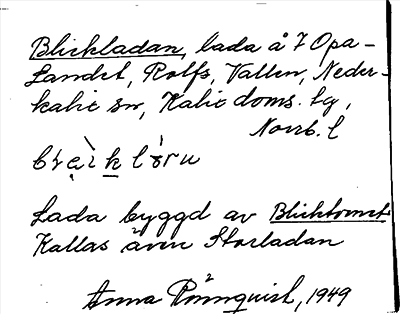 Blickladan, lada å 7 Opa-
Landet, Rolfs, Vallen, Neder-
kalix sn, Kalix doms. tg,
Norrb. l
Lada byggd av Blicktomet
Kallas även Storladan
Anna Rönnqvist, 1949